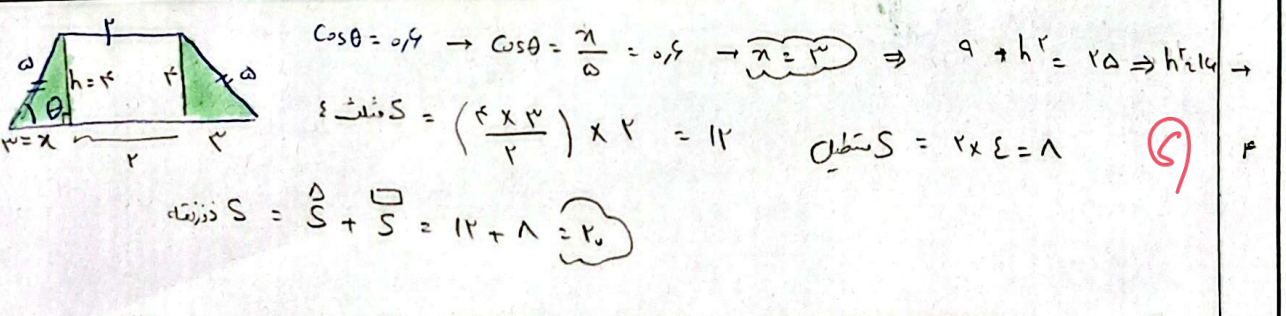 ۲
۵ h=۴ ۴ ۵
θ
۳=x ۲ ۳
Cosθ = ۰٫۶ → Cosθ = x/۵ = ۰٫۶ → x = ۳ ⇒ ۹ + h^۲ = ۲۵ ⇒ h^۲=۱۶ →
S مثلث = (۴ × ۳ / ۲) × ۲ = ۱۲ S مستطیل = ۲×٤=۸ ۴
S ذوزنقه = S + S = ۱۲ + ۸ = ۲۰